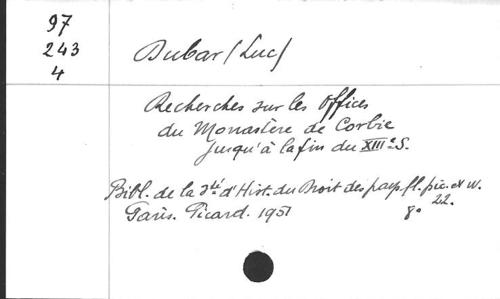 97
243
4
Dubar (Luc)
Recherches sur les Offices
du Monastère de Corbie
jusqu'à la fin du XIIIe S.
Bibl. de la Sté d'Hist. du Droit des pays fl. pic. et w.
Paris. Picard. 1951 8° 22.